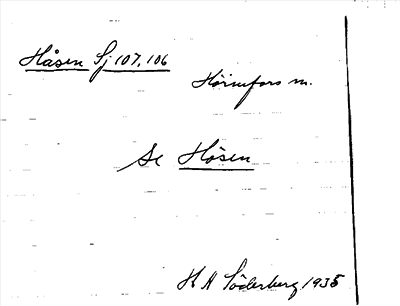 Håsen Sj 107, 106
Hörnefors m.
Se Hösen
H H Söderberg 1935